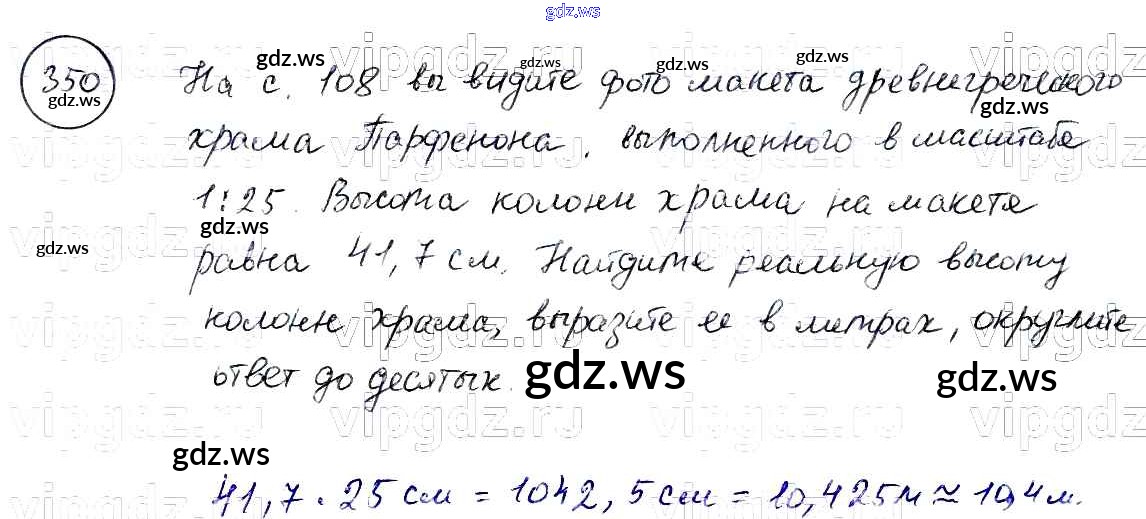 gdz.ws
350 На с. 108 вы видите фото макета древнегреческого
храма Парфенона, выполненного в масштабе
1:25. Высота колонн храма на макете
равна 41,7 см. Найдите реальную высоту
колонн храма, выразите ее в метрах, округлите
ответ до десятых.
41,7 · 25 см = 1042,5 см = 10,425 м ≈ 10,4 м.
gdz.ws
gdz.ws
gdz.ws
gdz.ws
gdz.ws
gdz.ws
gdz.ws
gdz.ws
gdz.ws
gdz.ws
gdz.ws
gdz.ws
vipgdz.ru